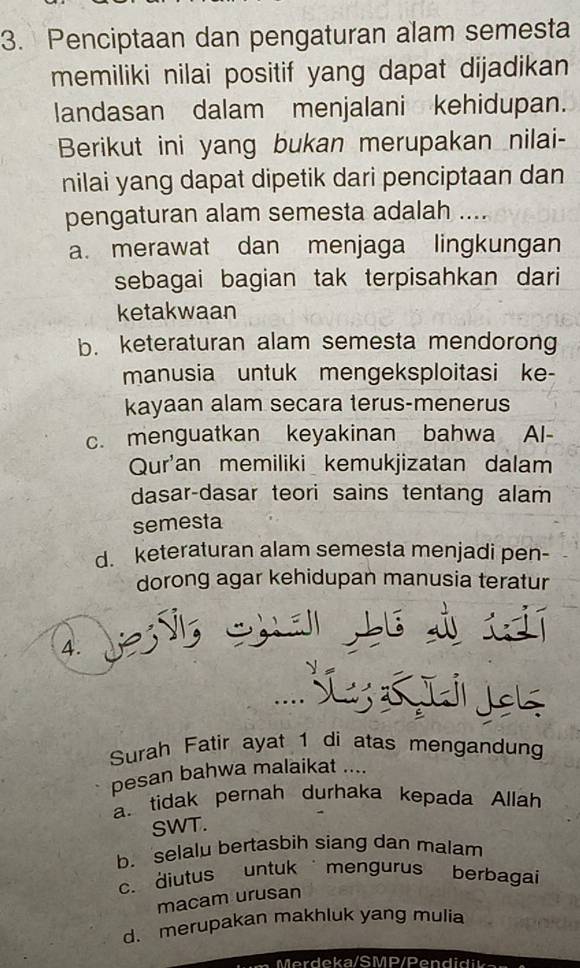 3. Penciptaan dan pengaturan alam semesta
memiliki nilai positif yang dapat dijadikan
landasan dalam menjalani kehidupan.
Berikut ini yang bukan merupakan nilai-
nilai yang dapat dipetik dari penciptaan dan
pengaturan alam semesta adalah ....
a. merawat dan menjaga lingkungan
sebagai bagian tak terpisahkan dari
ketakwaan
b. keteraturan alam semesta mendorong
manusia untuk mengeksploitasi ke-
kayaan alam secara terus-menerus
c. menguatkan keyakinan bahwa Al-
Qur'an memiliki kemukjizatan dalam
dasar-dasar teori sains tentang alam
semesta
d. keteraturan alam semesta menjadi pen-
dorong agar kehidupan manusia teratur
4. اَلْحَمْدُ لِلّٰهِ فَاطِرِ السَّمٰوٰتِ وَالْاَرْضِ
جَاعِلِ الْمَلٰۤىِٕكَةِ رُسُلًاۙ ....
Surah Fatir ayat 1 di atas mengandung
pesan bahwa malaikat ....
a. tidak pernah durhaka kepada Allah
SWT.
b. selalu bertasbih siang dan malam
c. diutus untuk mengurus berbagai
macam urusan
d. merupakan makhluk yang mulia
Merdeka/SMP/Pendidik